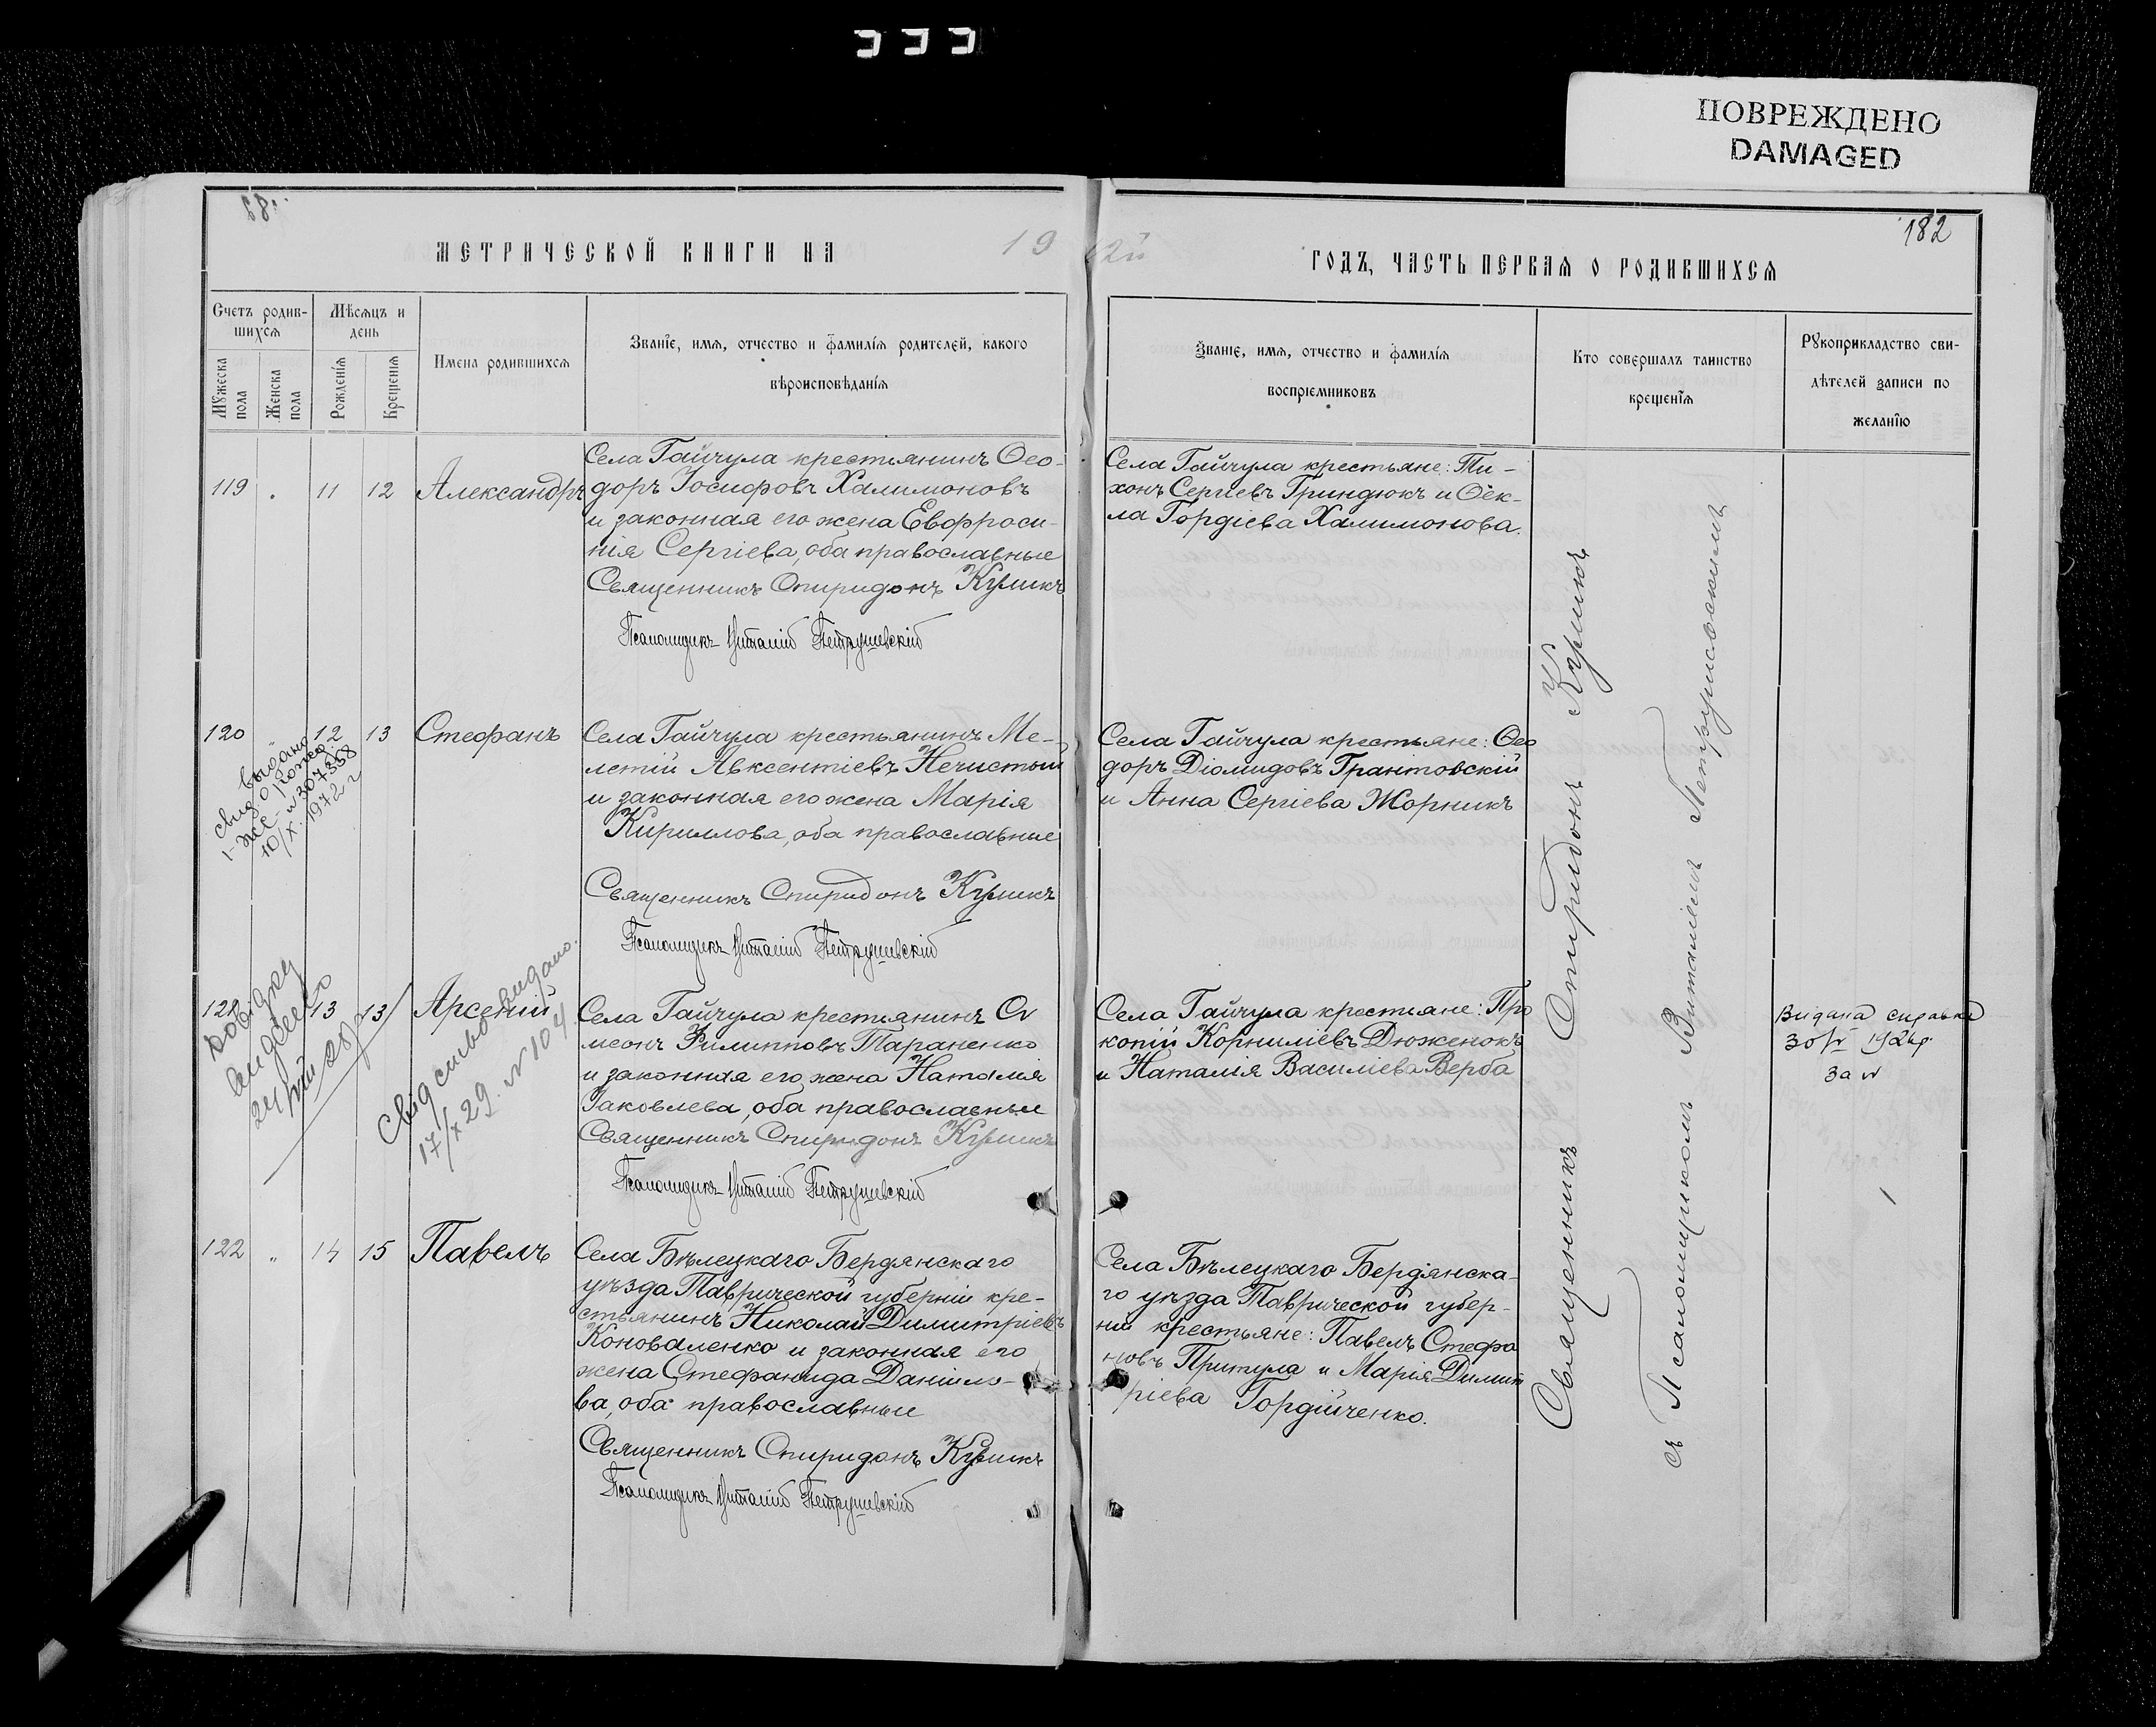 ПОВРЕЖДЕНО
DAMAGED
182
МЕТРИЧЕСКОЙ КНИГИ НА 19
12й ГОДЪ, ЧАСТЬ ПЕРВАЯ О РОДИВШИХСЯ
Счетъ родив-
шихся
Мужеска
пола
Женска
пола
Мѣсяцъ и
день
Рожденія
Крещенія
Имена родившихся
Званіе, имя, отчество и фамилія родителей, какого
вѣроисповѣданія
Званіе, имя, отчество и фамилія
воспріемниковъ
Кто совершалъ таинство
крещенія
Рукоприкладство сви-
дѣтелей записи по
желанію
119 11 12 Александръ
Села Гайчула крестьянинъ Ѳео-
доръ Іосифовъ Халимоновъ
и законная его жена Евфроси-
нія Сергіева, оба православные
Священникъ Спиридонъ Куликъ
Псаломщикъ Виталій Петрушевскій
Села Гайчула крестьяне: Ти-
хонъ Сергіевъ Гриндюкъ и Ѳек-
ла Гордіева Халимонова.
120 " 12 13 Стефанъ
Выдано
свид. о рожд.
10/X. 1972 г
Села Гайчула крестьянинъ Ме-
летій Авксентіевъ Нечистый
и законная его жена Марія
Кириллова, оба православные
Священникъ Спиридонъ Куликъ
Псаломщикъ Виталій Петрушевскій
Села Гайчула крестьяне: Ѳео
доръ Діомидовъ Грантовскій
и Анна Сергіева Жорникъ
121 13 13 Арсеній
Довідку
видано
24/VIII 28 р
Свидетельство видано.
17/X 29. N 104
Села Гайчула крестьянинъ Си
меонъ Филипповъ Тараненко
и законная его жена Наталія
Іаковлева, оба православные
Священникъ Спиридонъ Куликъ
Псаломщикъ Виталій Петрушевскій
Села Гайчула крестьяне: Про
копій Корниліевъ Дюженокъ
и Наталія Василіева Верба
Видана справка
за N
122 " 14 15 Павелъ
Села Бѣлецкаго Бердянскаго
уѣзда Таврической губерніи кре-
стьянинъ Николай Димитріевъ
Коноваленко и законная его
жена Стефанида Данiило-
ва, оба православные
Священникъ Спиридонъ Куликъ
Псаломщикъ Виталій Петрушевскій
Села Бѣлецкаго Бердянска-
го уѣзда Таврической губер-
ніи крестьяне: Павелъ Стефа
новъ Притула и Марія Димит
ріева Гордійченко.
Священникъ Спиридонъ Куликъ
съ Псаломщикомъ Виталіемъ Петрушевскимъ